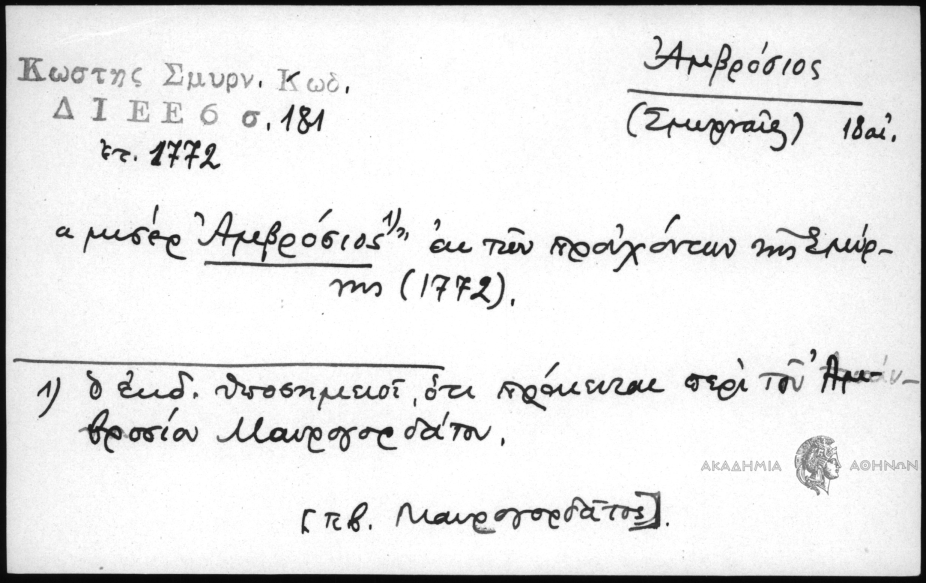 Κωστης Σμυρν. Κωδ.
Δ Ι Ε Ε 6 σ. 181
ἔτ. 1772
Ἀμβρόσιος
(Σμυρναῖος) 18 αἰ.
« μισέρ Ἀμβρόσιος 1)» ἐκ τῶν προὐχόντων τῆς Σμύρ-
νης (1772).
1) ὁ ἐκδ. ὑποσημειοῖ, ὅτι πρόκειται περὶ τοῦ Ἀμ-
βροσίου Μαυρογορδάτου.
ΑΚΑΔΗΜΙΑ ΑΘΗΝΩΝ
[πβ. Μαυρογορδᾶτος].